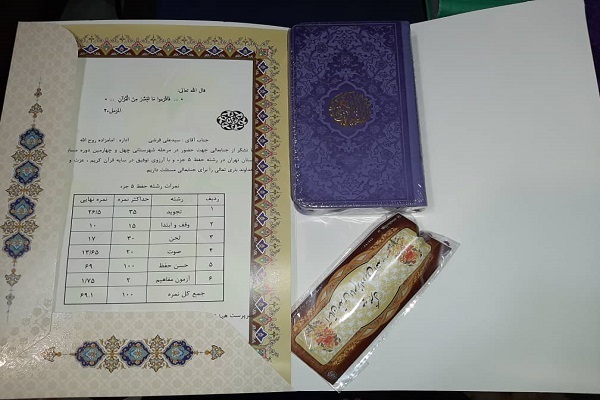 قال الله تعالی:
« ... فَاقْرَءُوا مَا تَیَسَّرَ مِنَ الْقُرْآنِ ... »
المزمل،۲۰
جناب آقای : سیدعلی قرشی اداره : امامزاده روح الله
تشکر از جنابعالی جهت حضور در مرحله شهرستانی چهل و چهارمین دوره
ستان تهران در رشته حفظ ۵ جزء و با آرزوی توفیق در سایه قرآن کریم ، عزت و
داوند باری تعالی را برای جنابعالی مسئلت داریم.
نمرات رشته حفظ ۵ جزء
ردیف رشته حداکثر نمره نمره نهایی
۱ تجوید ۳۵ ۲۶/۵
۲ وقف و ابتدا ۱۵ ۱۰
۳ لحن ۳۰ ۱۷
۴ صوت ۲۰ ۱۳/۶۵
۵ حسن حفظ ۱۰۰ ۶۹
۶ آزمون مفاهیم ۲ ۱/۷۵
جمع کل نمره ۱۰۰ ۶۹.۱